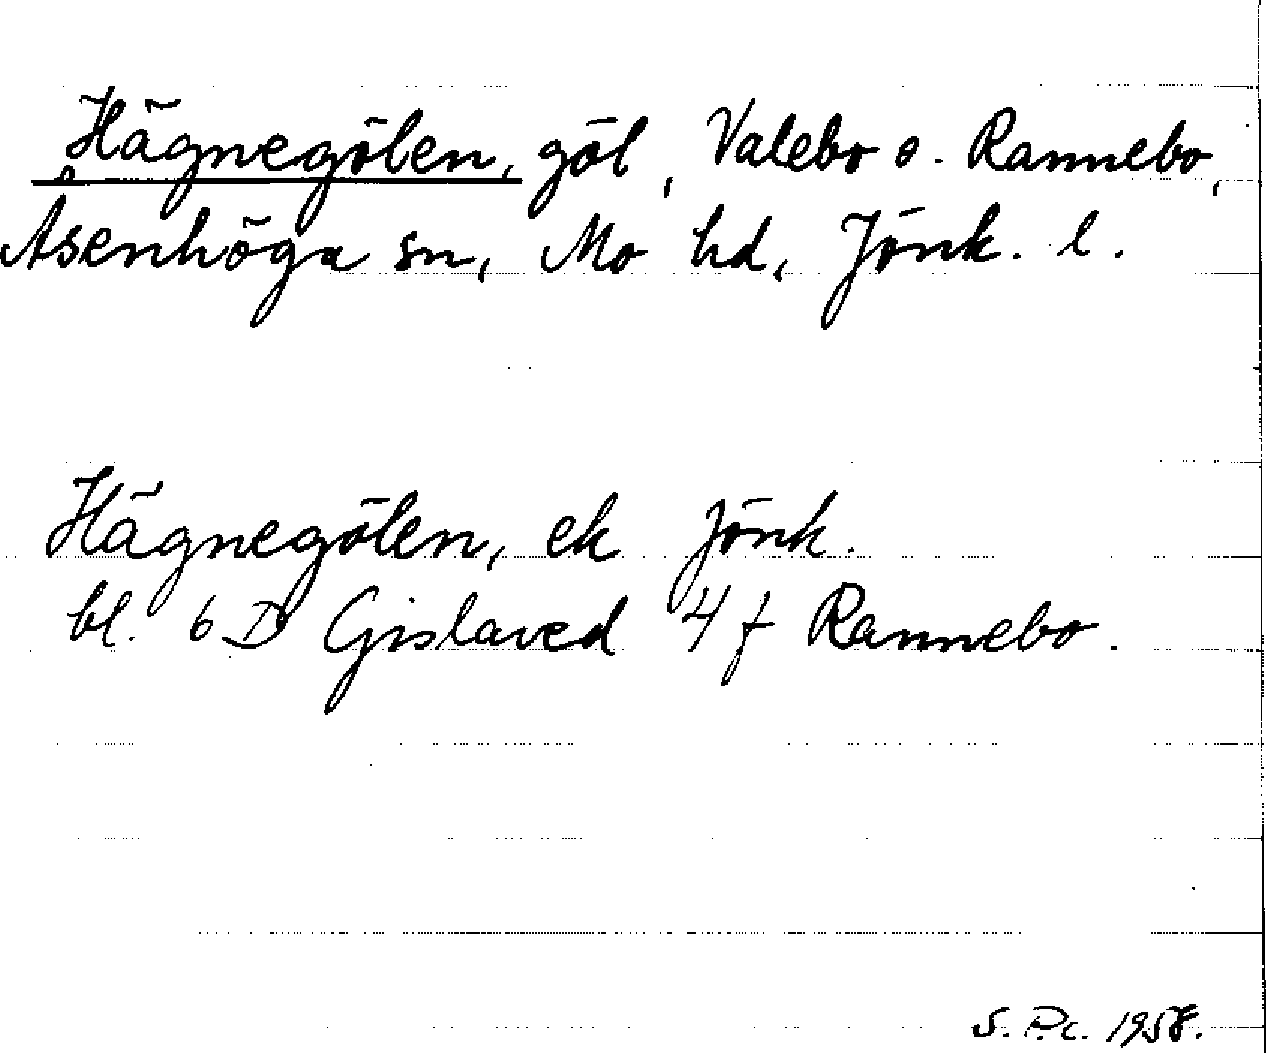 Hägnegölen, göl, Valebo o. Rannebo,
Åsenhöga sn, Mo hd, Jönk. l.
Hägnegölen, ek Jönk.
bl. 6 D Gislaved 4 f Rannebo.
S. P:c. 1958.